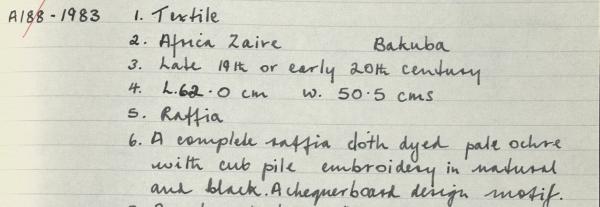 A188-1983 1. Textile
2. Africa Zaire Bakuba
3. Late 19th or early 20th century
4. L.62.0 cm W. 50.5 cms
5. Raffia
6. A complete raffia cloth dyed pale ochre
with cub pile embroidery in natural
and black. A chequerboard design motif.